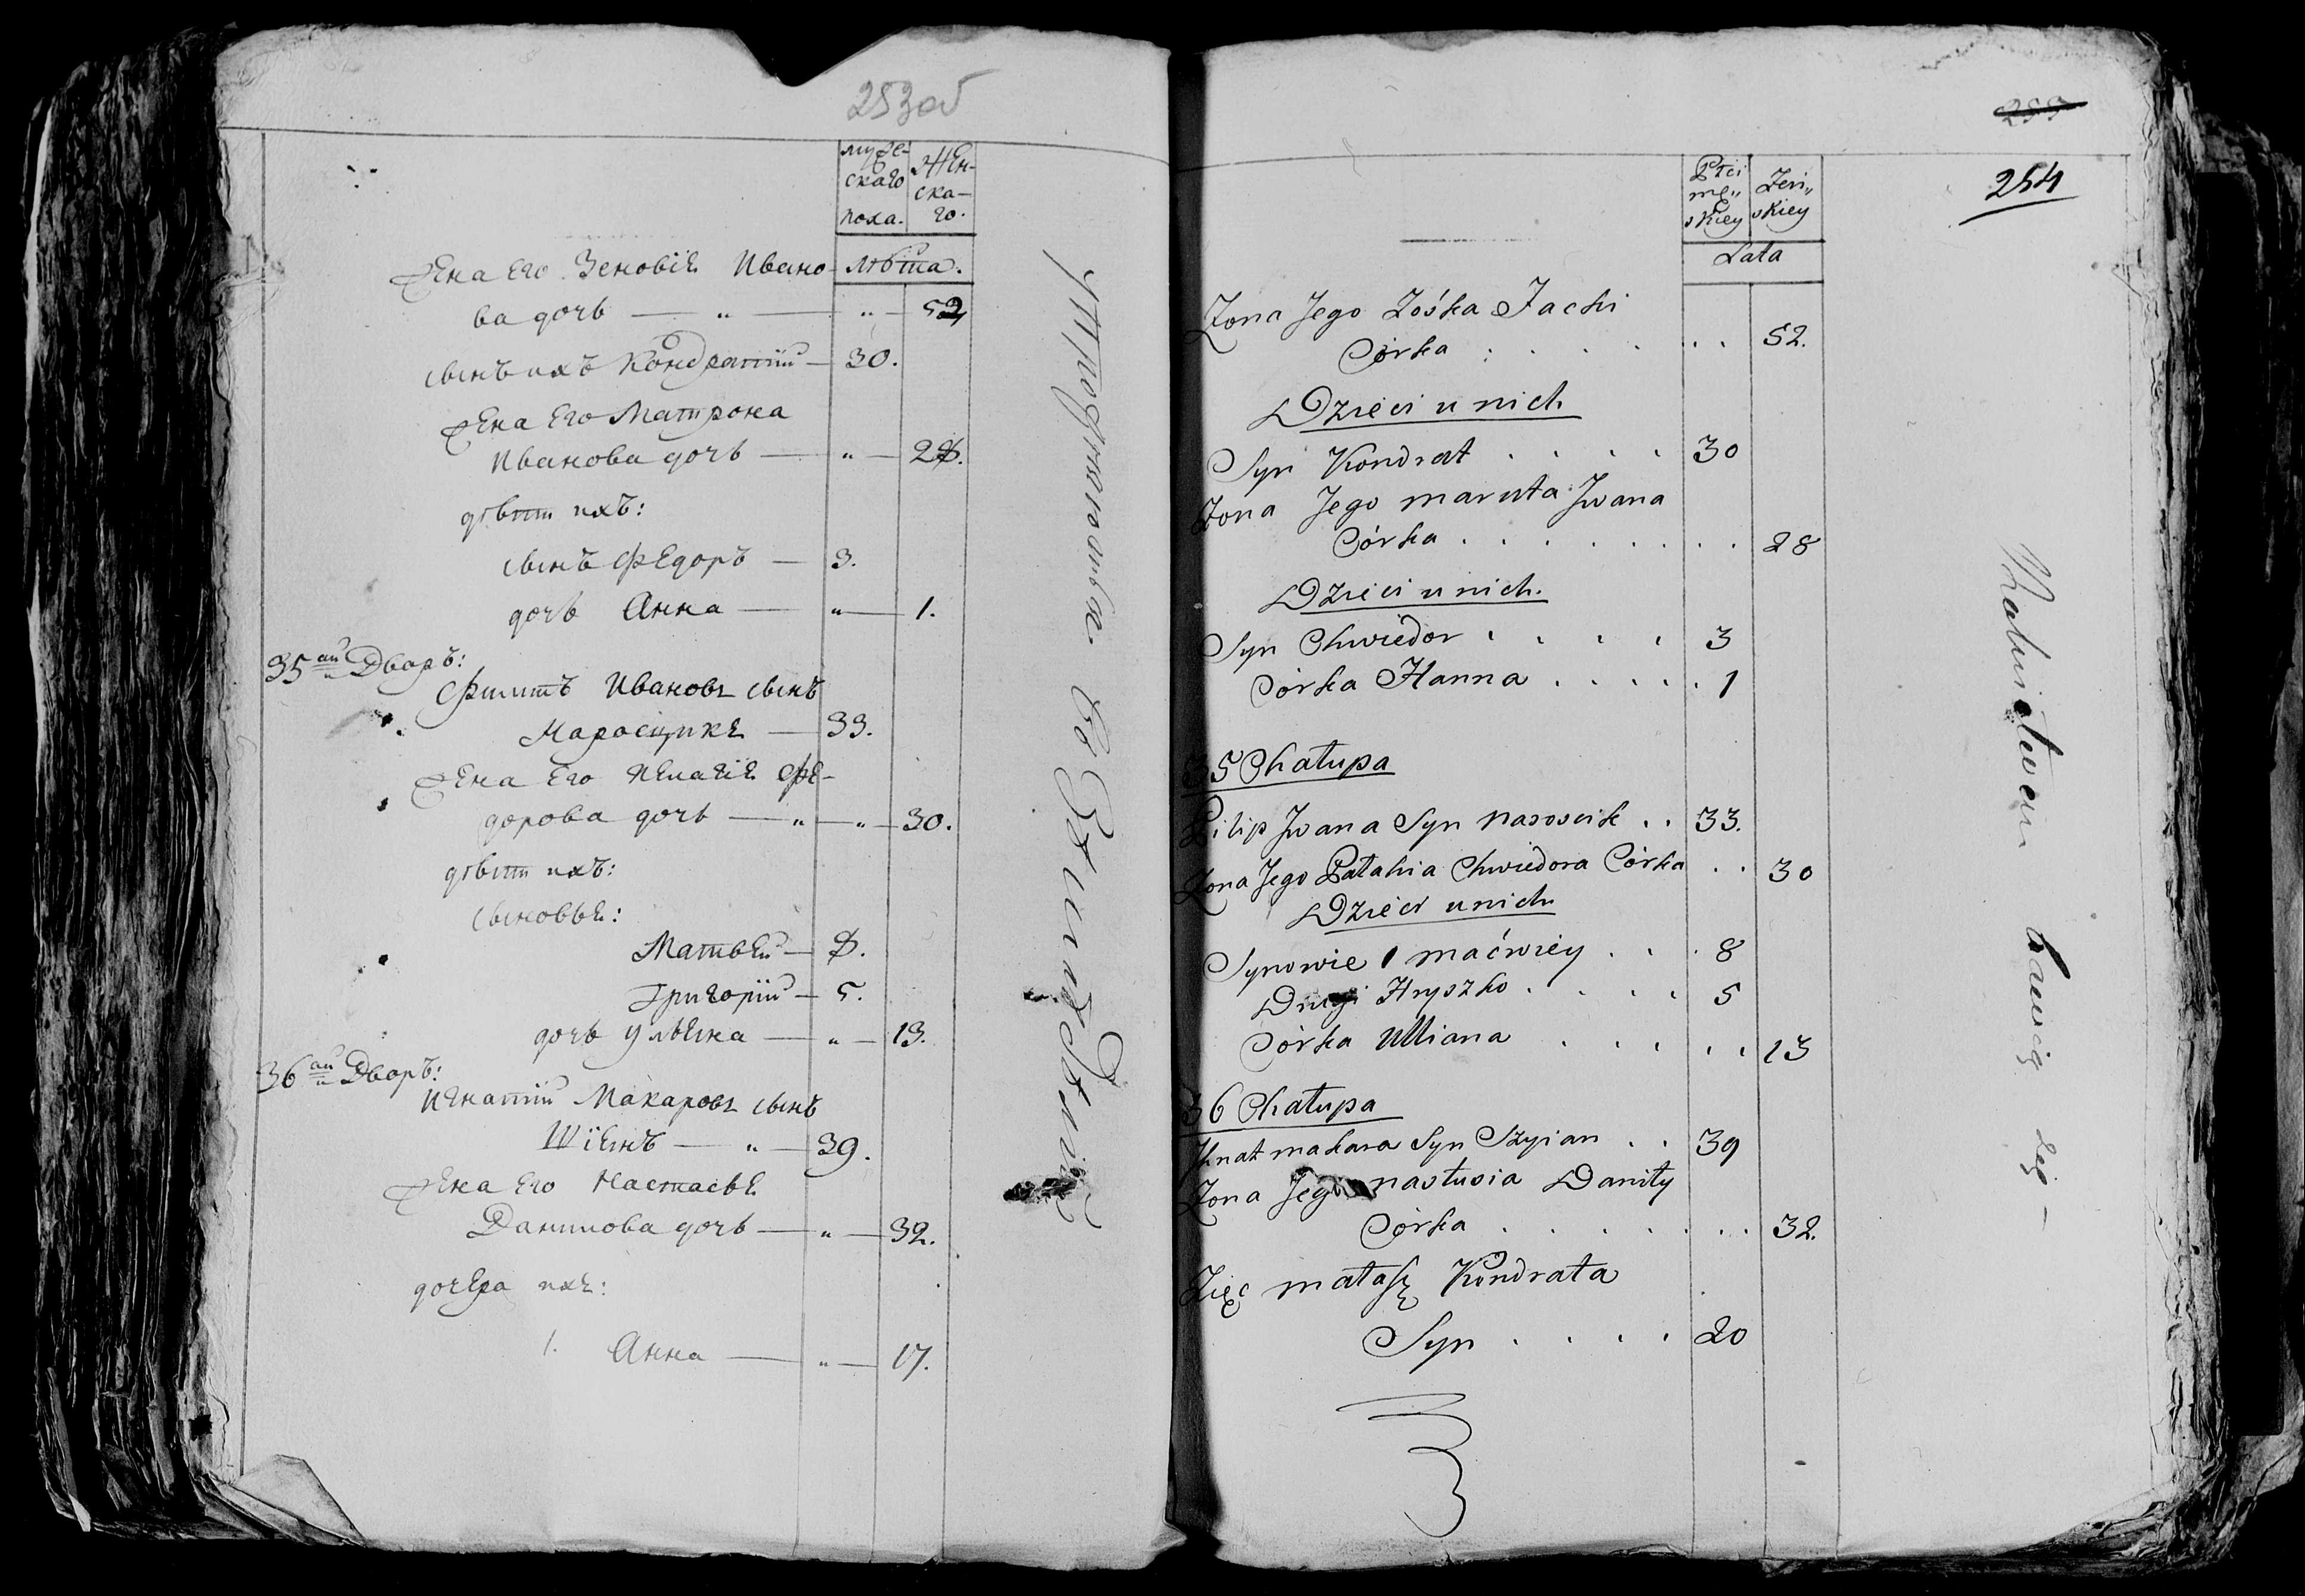 253об
мужескаго пола.
Женскаго.
лѣта.
Жена Его Зеновія Ивано-
ва дочь — „ — „ — 52
сынъ ихъ Кондратій — 30.
Жена Его Матрона
Иванова дочь — „ — 28.
дѣти ихъ:
сынъ Федоръ — 3.
дочь Анна — „ — 1.
35 ый Дворъ:
Филипъ Ивановъ сынъ
— 33.
Жена Его Пелагія Фе-
дорова дочь — „ — „ — 30.
дѣти ихъ:
сыновья:
Матвѣй — 8.
Григорій — 5.
дочь Ульяна — „ — 13.
36 ый Дворъ:
Игнатій Макаровъ сынъ
Шіянъ — „ — 39.
Жена Его Настасья
Данилова дочь — „ — 32.
дочеря ихъ:
1. Анна — „ — 17.
254
Płci męskiey
Żeńskiey
Lata
Żona Jego Zośka Jacki
Córka . . . . . . 52.
Dzieci u nich
Syn Kondrat . . . . 30
Żona Jego maruta Jwana
Córka . . . . . . . . 28
Dzieci u nich.
Syn Chwiedor . . . . 3
Córka Hanna . . . . . 1
35 Chałupa
Pilip Jwana Syn nasoscik . . 33.
Żona Jego Pałahia Chwiedora Córka . . 30
Dzieci u nich
Synowie 1 maćwiey . . . 8
Drugi Hryszko . . . . 5
Córka Ulliana . . . . . . 13
36 Chałupa
Jhnat makara Syn Szyian . . 39
Żona Jego nastusia Daniły
Córka . . . . . . . 32.
Zięć Kondrata
Syn . . . . 20